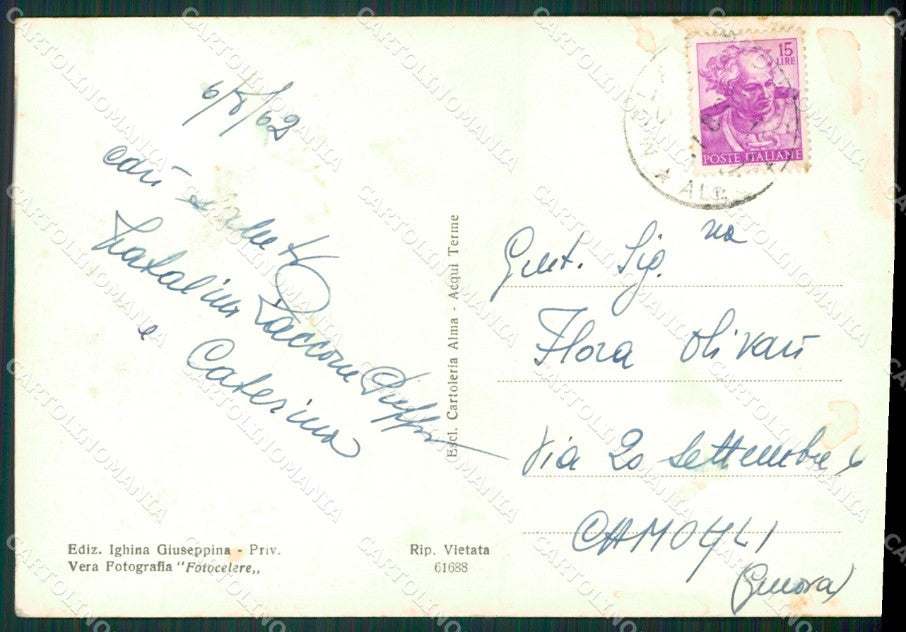 6/5/62
cari saluti
Natalina Pacconi Peppi
e
Caterina
Ediz. Ighina Giuseppina - Priv.
Vera Fotografia "Fotocelere,,
Rip. Vietata
61688
Escl. Cartoleria Alma - Acqui Terme
15
LIRE
POSTE ITALIANE
Gent. Sig.na
Flora Olivari
Via 20 Settembre 6
CAMOGLI
(Genova)
CARTOLINOMANIA